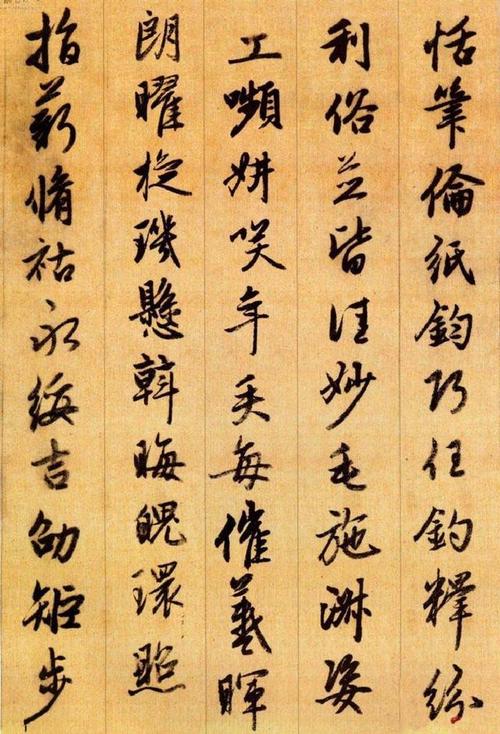 恬筆倫紙鈞巧任釣釋紛
利俗並皆佳妙毛施淑姿
工嚬妍咲年矢每催羲暉
朗曜旋璣懸斡晦魄環照
指薪脩祜永綏吉劭矩步